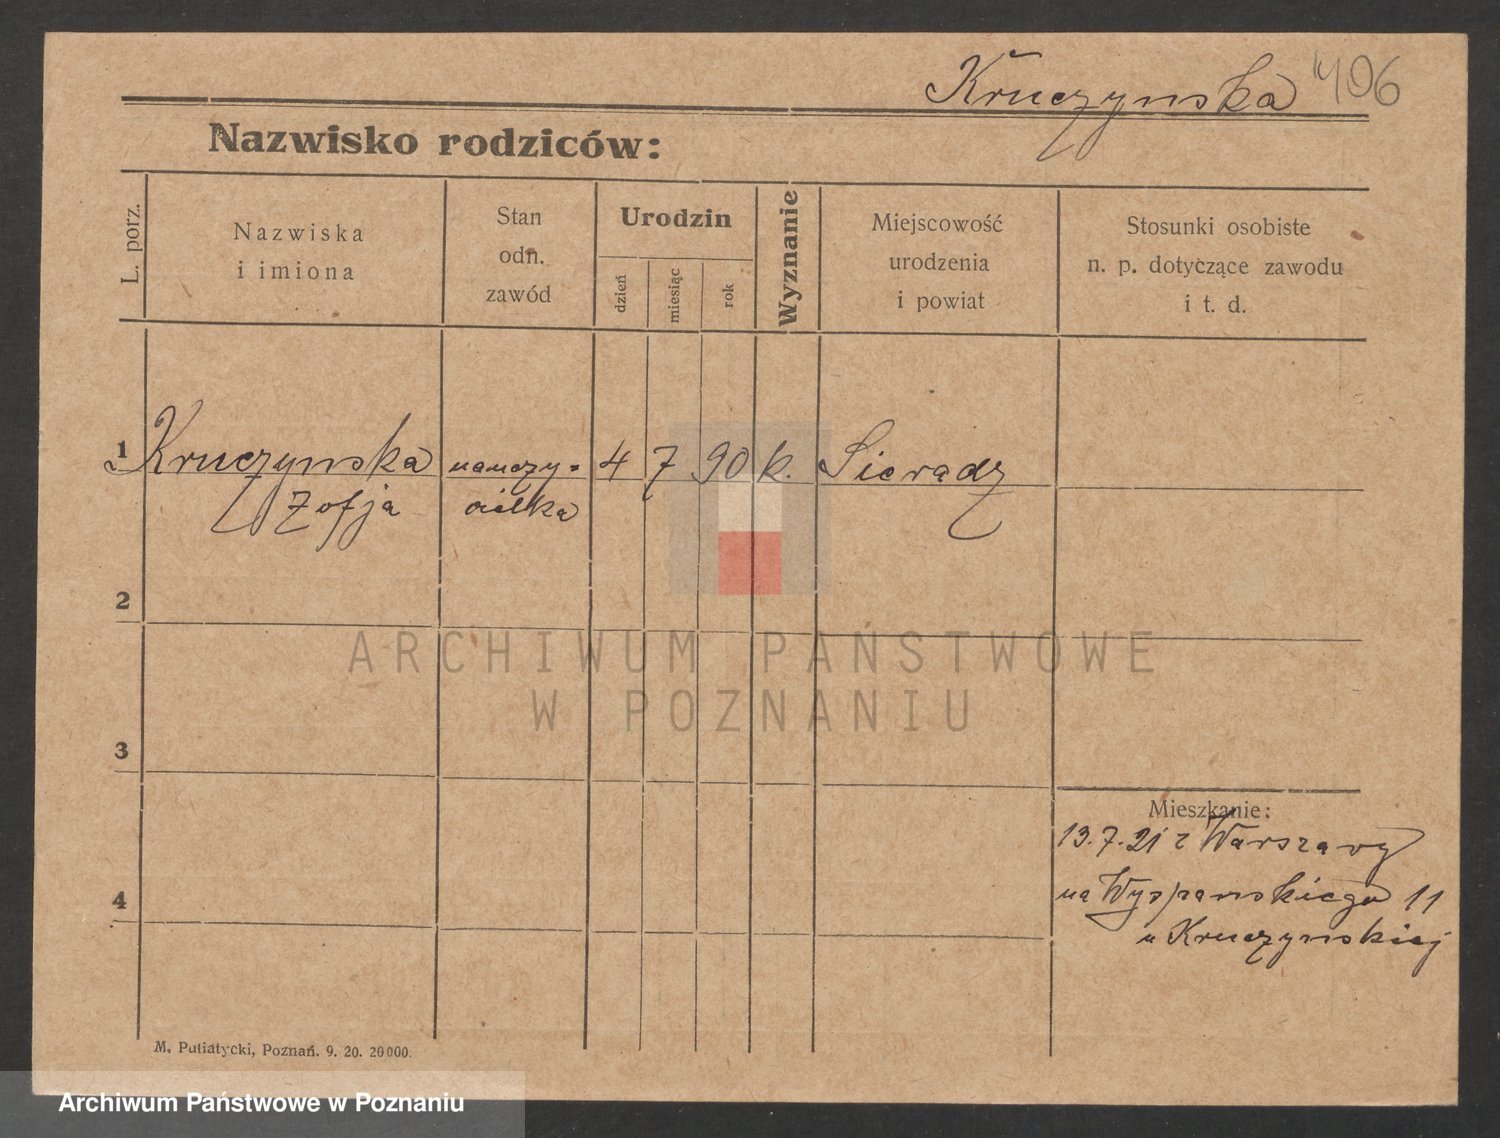 Kruczynska 406
Nazwisko rodziców:
L. porz.
Nazwiska
i imiona
Stan
odn.
zawód
Urodzin
dzień
miesiąc
rok
Wyznanie
Miejscowość
urodzenia
i powiat
Stosunki osobiste
n. p. dotyczące zawodu
i t. d.
1 Kruczynska nauczy= 4 7 90 k. Sieradz
Zofja cielka
2
ARCHIWUM PAŃSTWOWE
W POZNANIU
3
Mieszkanie:
13.7.21 z Warszawy
4 na Wyspianskiego 11
u Kruczynskiej
M. Putiatycki, Poznań. 9. 20. 20000.
Archiwum Państwowe w Poznaniu